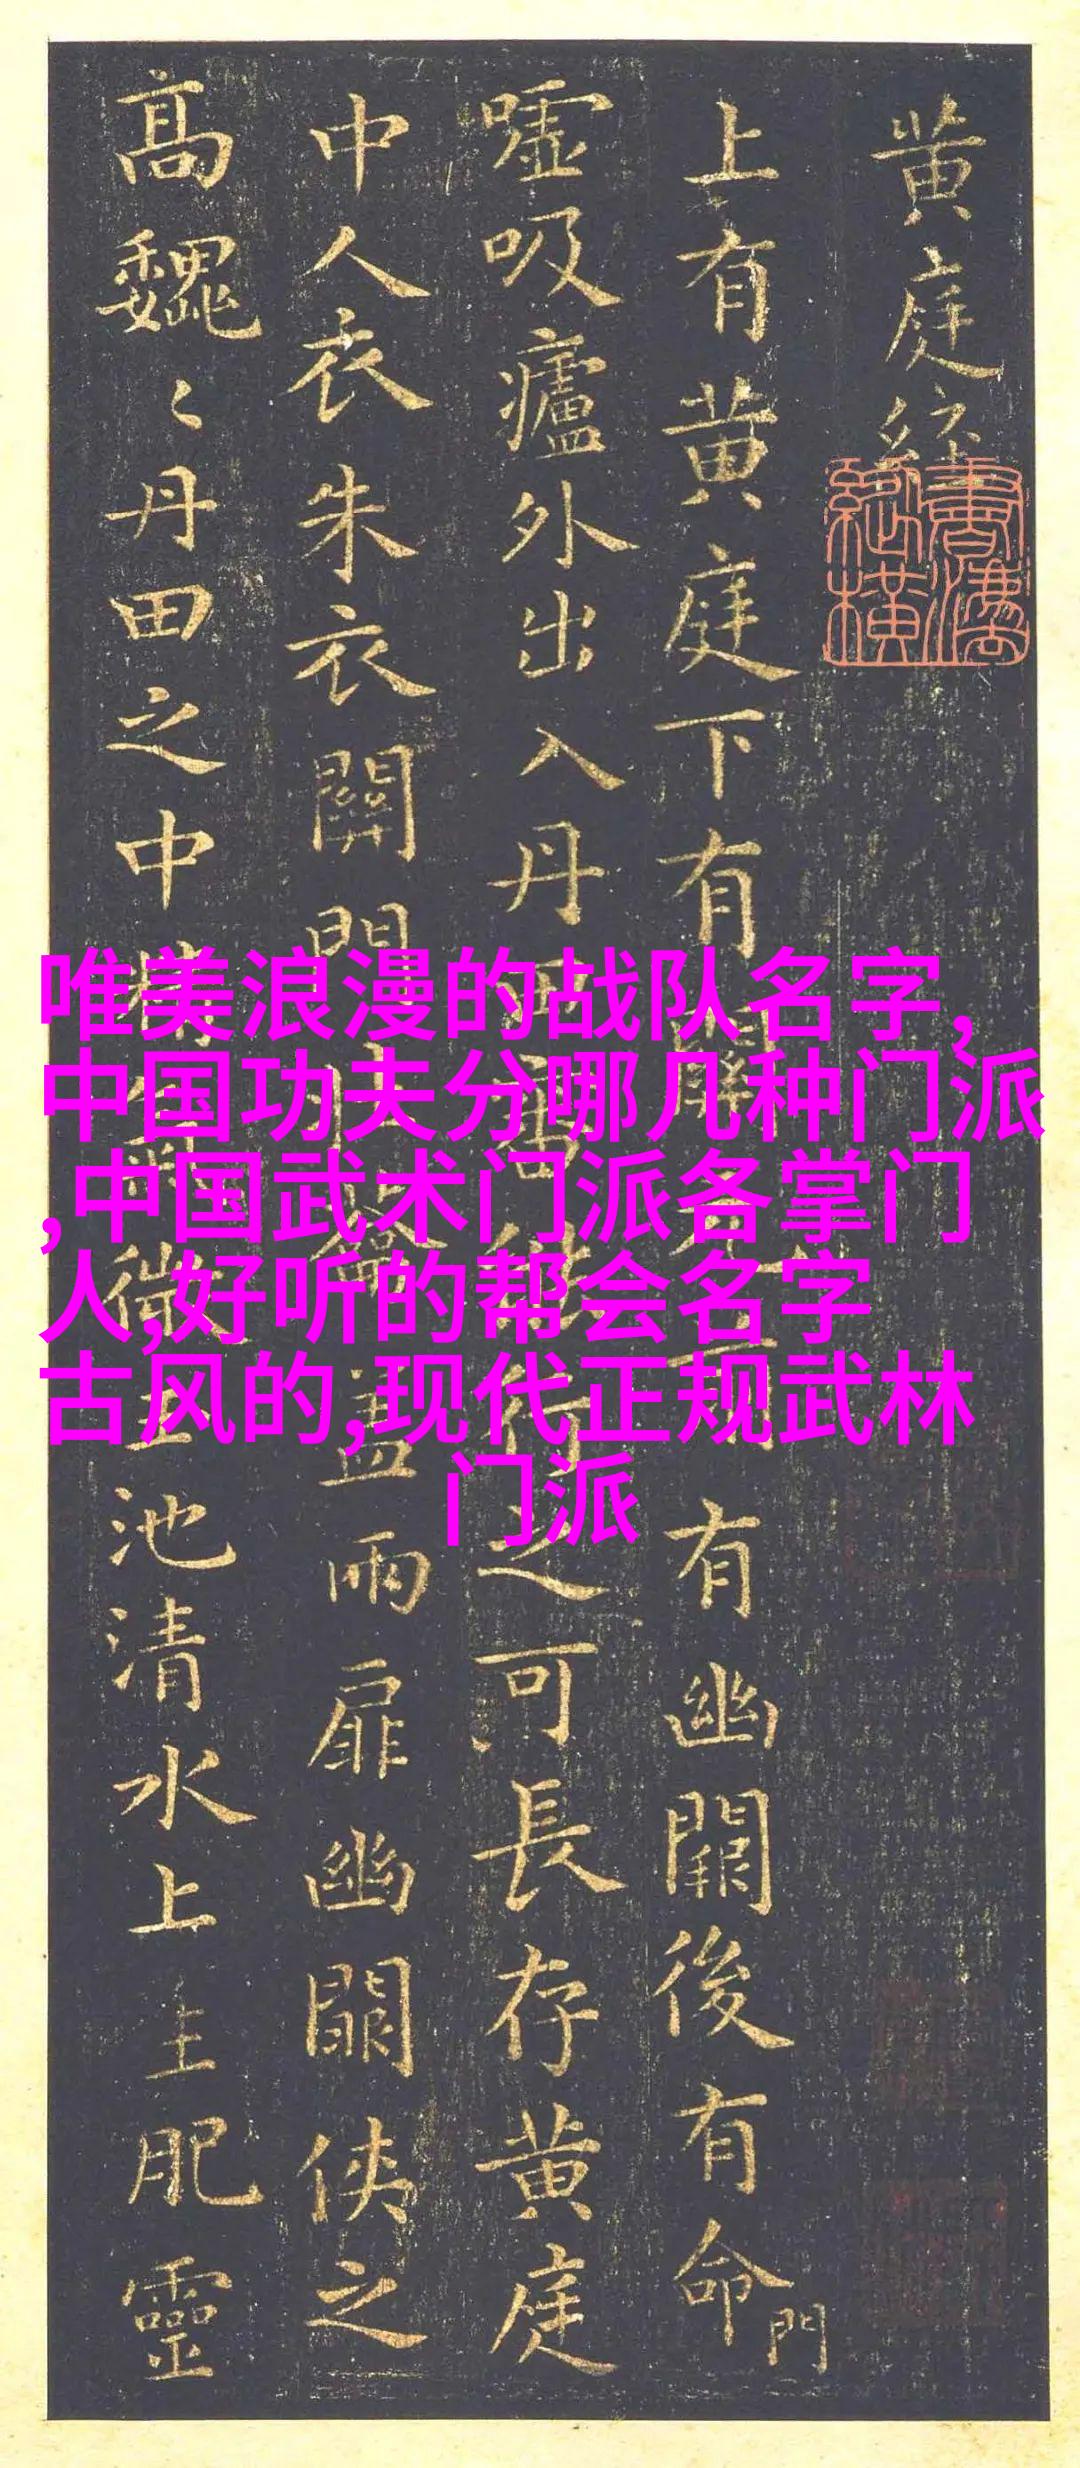 黄庭經
上有黄庭下有關元前有幽闕後有命門
嘘吸廬外出入丹田審能行之可長存黄庭
中人衣朱衣關門壯籥蓋兩扉幽闕俠之
高魏〻丹田之中精氣微玉池清水上生肥靈
唯美浪漫的战队名字,
中国功夫分哪几种门派
,中国武术门派各掌门
人,好听的帮会名字
古风的,现代正规武林
门派